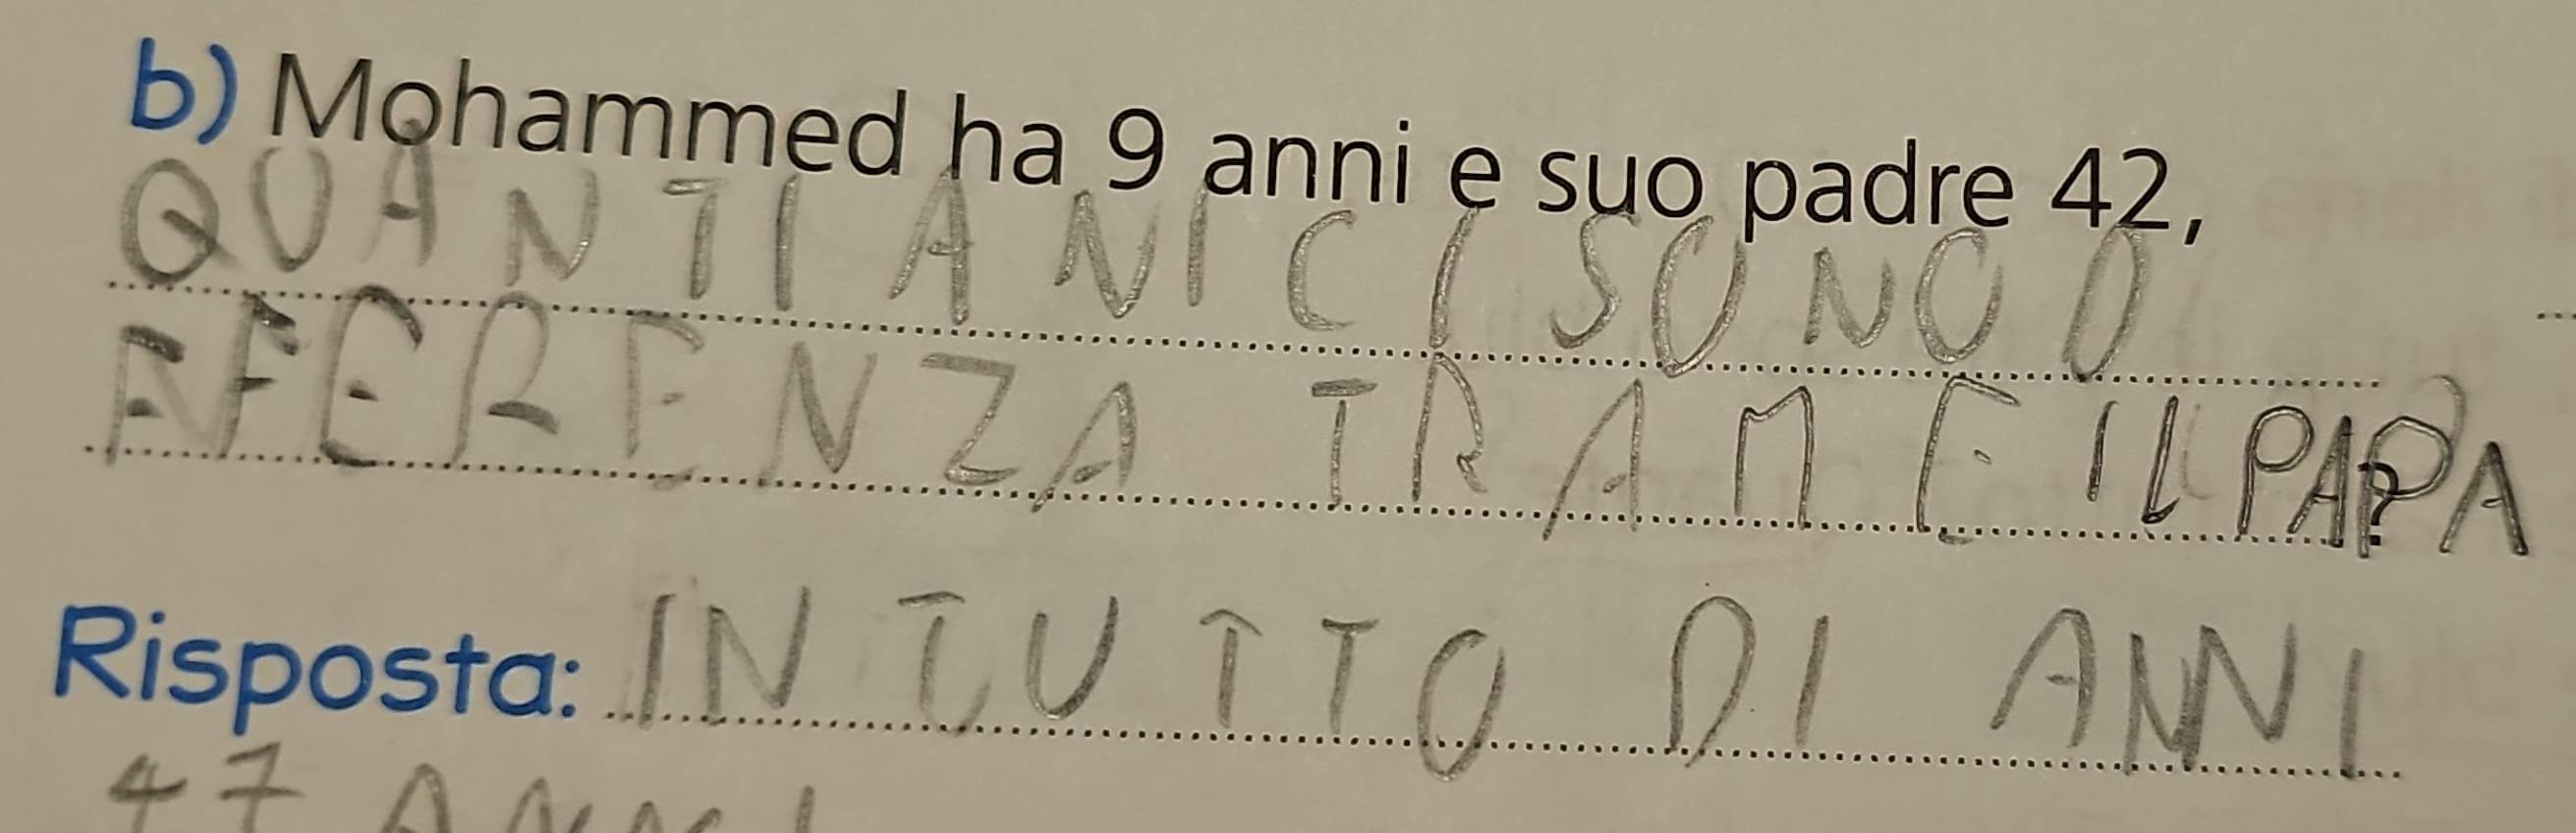 b) Mohammed ha 9 anni e suo padre 42,
QUANTI ANI CI SONO D
FFERENZA TRA M E IL PAPA?
Risposta: IN TUTTO DI ANNI
47 ANNI